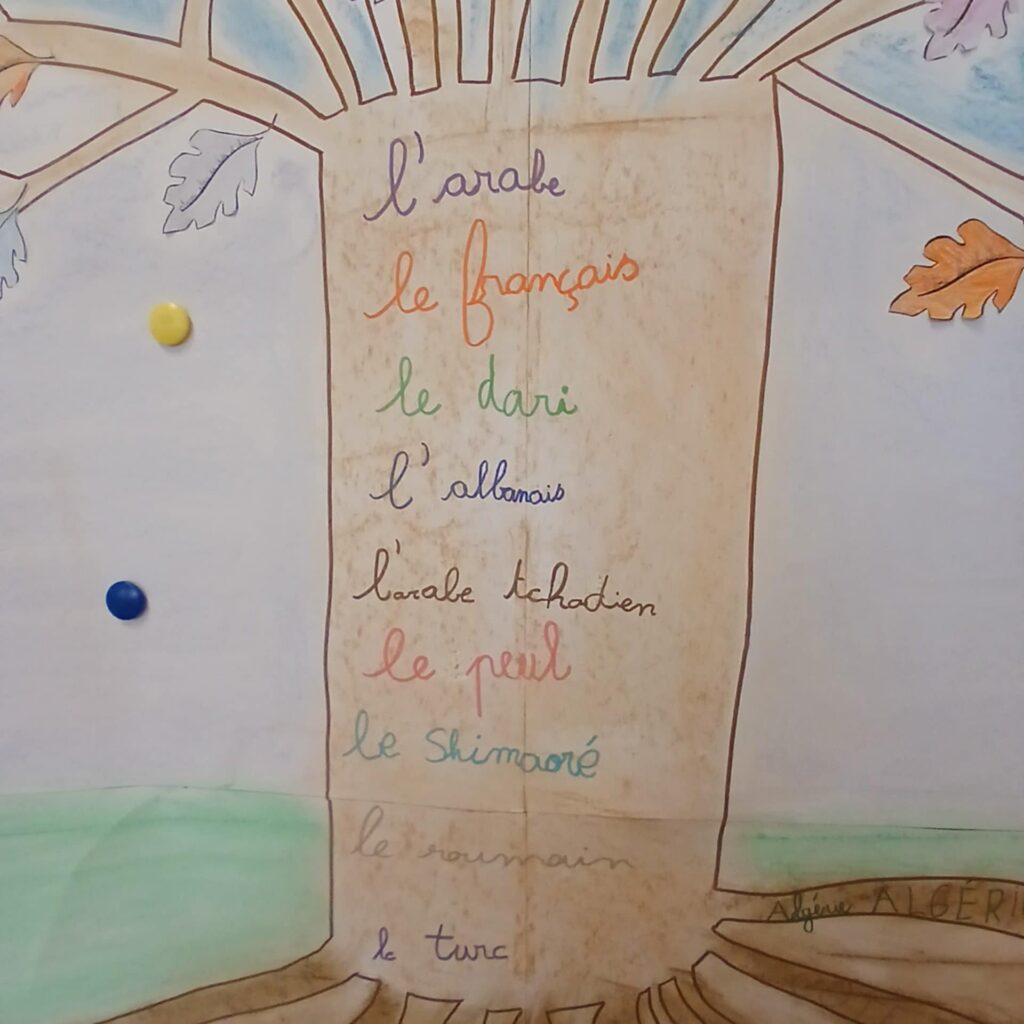 l'arabe
le français
le dari
l'albanais
l'arabe tchadien
le peul
le Shimaoré
le roumain
Algérie ALGÉRI
le turc